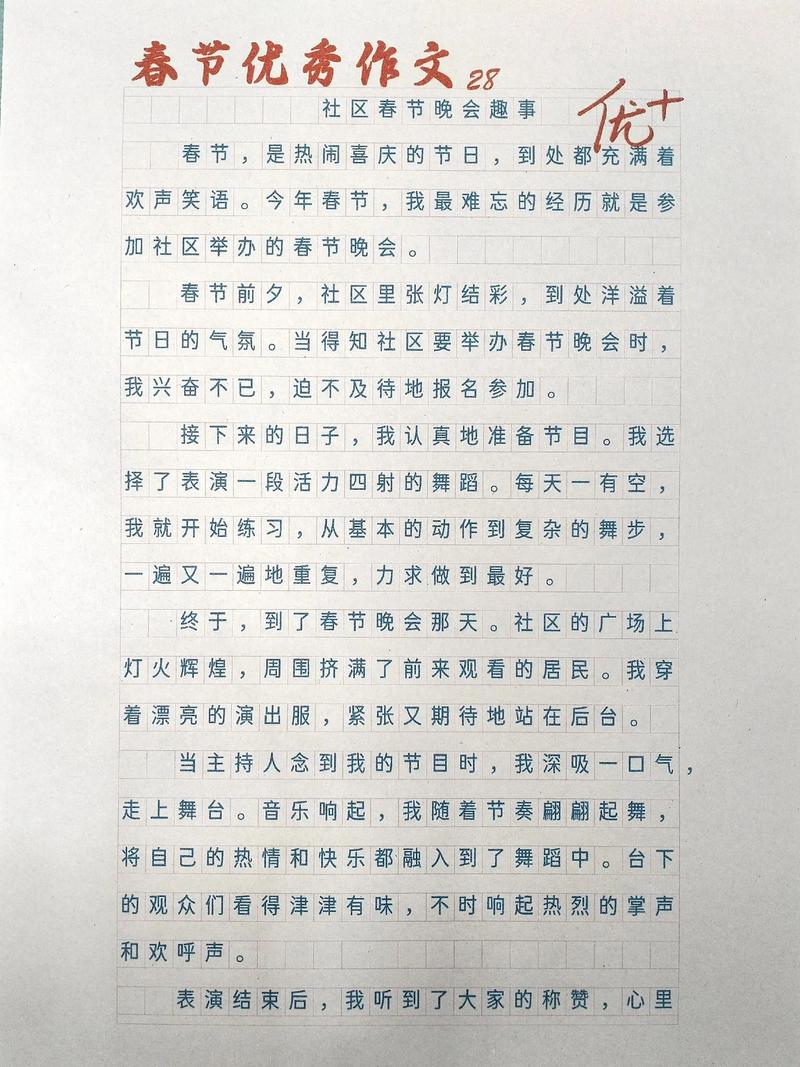 春节优秀作文28
优+
社区春节晚会趣事
春节，是热闹喜庆的节日，到处都充满着
欢声笑语。今年春节，我最难忘的经历就是参
加社区举办的春节晚会。
春节前夕，社区里张灯结彩，到处洋溢着
节日的气氛。当得知社区要举办春节晚会时，
我兴奋不已，迫不及待地报名参加。
接下来的日子，我认真地准备节目。我选
择了表演一段活力四射的舞蹈。每天一有空，
我就开始练习，从基本的动作到复杂的舞步，
一遍又一遍地重复，力求做到最好。
终于，到了春节晚会那天。社区的广场上
灯火辉煌，周围挤满了前来观看的居民。我穿
着漂亮的演出服，紧张又期待地站在后台。
当主持人念到我的节目时，我深吸一口气，
走上舞台。音乐响起，我随着节奏翩翩起舞，
将自己的热情和快乐都融入到了舞蹈中。台下
的观众们看得津津有味，不时响起热烈的掌声
和欢呼声。
表演结束后，我听到了大家的称赞，心里